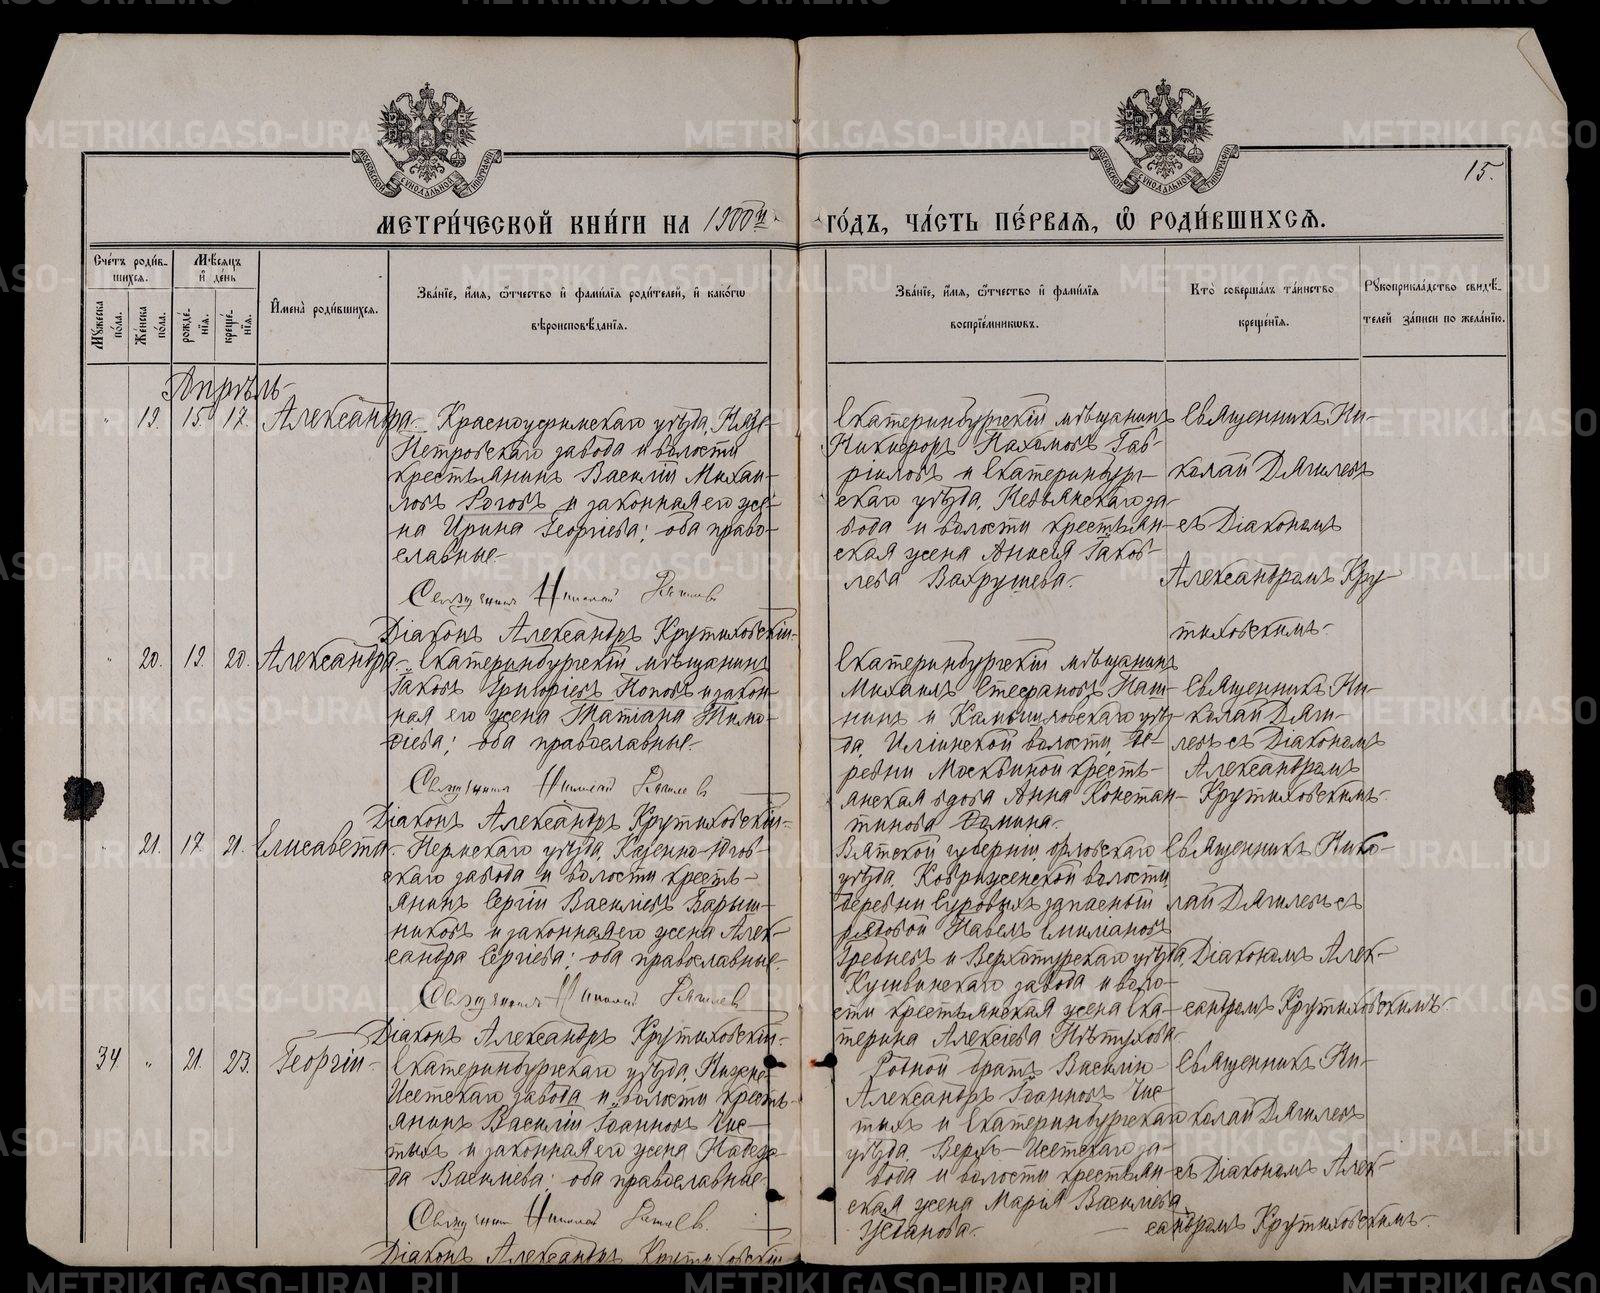 15.
МЕТРИ́ЧЕСКОЙ КНИ́ГИ НА 1900й
ГО́ДЪ, ЧА́СТЬ ПЕ́РВАЯ, Ѽ РОДИ́ВШИХСЯ.
Сче́тъ роди́в-
шихся.
Мꙋ́жеска по́ла.
Же́нска по́ла.
Мѣ́сяцъ и де́нь
рожде́нїя.
креще́нїя.
И҆мена̀ роди́вшихся.
Зва́нїе, и҆́мя, ѻ҆́тчество и҆ фами́лїя роди́телей, и҆ како́гѡ
вѣроисповѣ́данїя.
Зва́нїе, и҆́мя, ѻ҆́тчество и҆ фами́лїя
воспрїе́мникѡвъ.
Кто̀ соверша́лъ та́инство
креще́нїя.
Рꙋкоприкла́дство свидѣ́-
телей за́писи по жела́нїю.
Апрѣль
" 19. 15. 17. Александра
Красноуфимскаго уѣзда, Нязе-
Петровскаго завода и волости
крестьянинъ Василій Михаи-
ловъ Роговъ и законная его же-
на Ирина Георгіева; оба право-
славные.
Священникъ Николай Дягилевъ
Діаконъ Александръ Крутиховскій
Екатеринбургскій мѣщанинъ
Никифоръ Пахомовъ Гав-
ріиловъ и Екатеринбург-
скаго уѣзда, Невьянскаго за-
вода и волости крестьян-
ская жена Анисія Іаков-
лева Вахрушева.
Священникъ Ни-
колай Дягилевъ
съ Діакономъ
Александромъ Кру
тиховскимъ.
" 20. 19. 20. Александра
Екатеринбургскій мѣщанинъ
Іаковъ Григоріевъ Поповъ и закон-
ная его жена Татіана Тимо-
фіева; оба православные.
Священникъ Николай Дягилевъ
Діаконъ Александръ Крутиховскій
Екатеринбургскій мѣщанинъ
Михаилъ Стефановъ Паш-
нинъ и Камышловскаго уѣз-
да, Ильинской волости, де-
ревни Москвиной кресть-
янская вдова Анна Констан-
тинова
Священникъ Ни-
колай Дяги-
левъ съ Діакономъ
Александромъ
Крутиховскимъ.
" 21. 17. 21. Елисавета
Пермскаго уѣзда, Казенно-Югов-
скаго завода и волости кресть-
янинъ Сергій Василіевъ Барыш-
никовъ и законная его жена Алек-
сандра Сергіева; оба православные.
Священникъ Николай Дягилевъ
Діаконъ Александръ Крутиховскій
Вятской губерніи, Орловскаго
уѣзда, волости,
деревни запасный
рядовой Павелъ Емиліановъ
Гребневъ и Верхотурскаго уѣзда,
Кушвинскаго завода и воло-
сти крестьянская жена Ека-
терина Алексіева Пѣтухова
Священникъ Нико-
лай Дягилевъ съ
Діакономъ Алек-
сандромъ Крутиховскимъ.
34. " 21. 23. Георгій
Екатеринбургскаго уѣзда, Нижне-
Исетскаго завода и волости кресть-
янинъ Василій Іоанновъ Чис-
тыхъ и законная его жена Надеж-
да Василіева; оба православные.
Священникъ Николай Дягилевъ.
Діаконъ Александръ Крутиховскій
Родной братъ Василія
Александръ Іоанновъ Чис
тыхъ и Екатеринбургскаго
уѣзда, Верхъ-Исетскаго за-
вода и волости крестьян-
ская жена Марія Василіева
Усванова.
Священникъ Ни-
колай Дягилевъ
съ Діакономъ Алек-
сандромъ Крутиховскимъ.